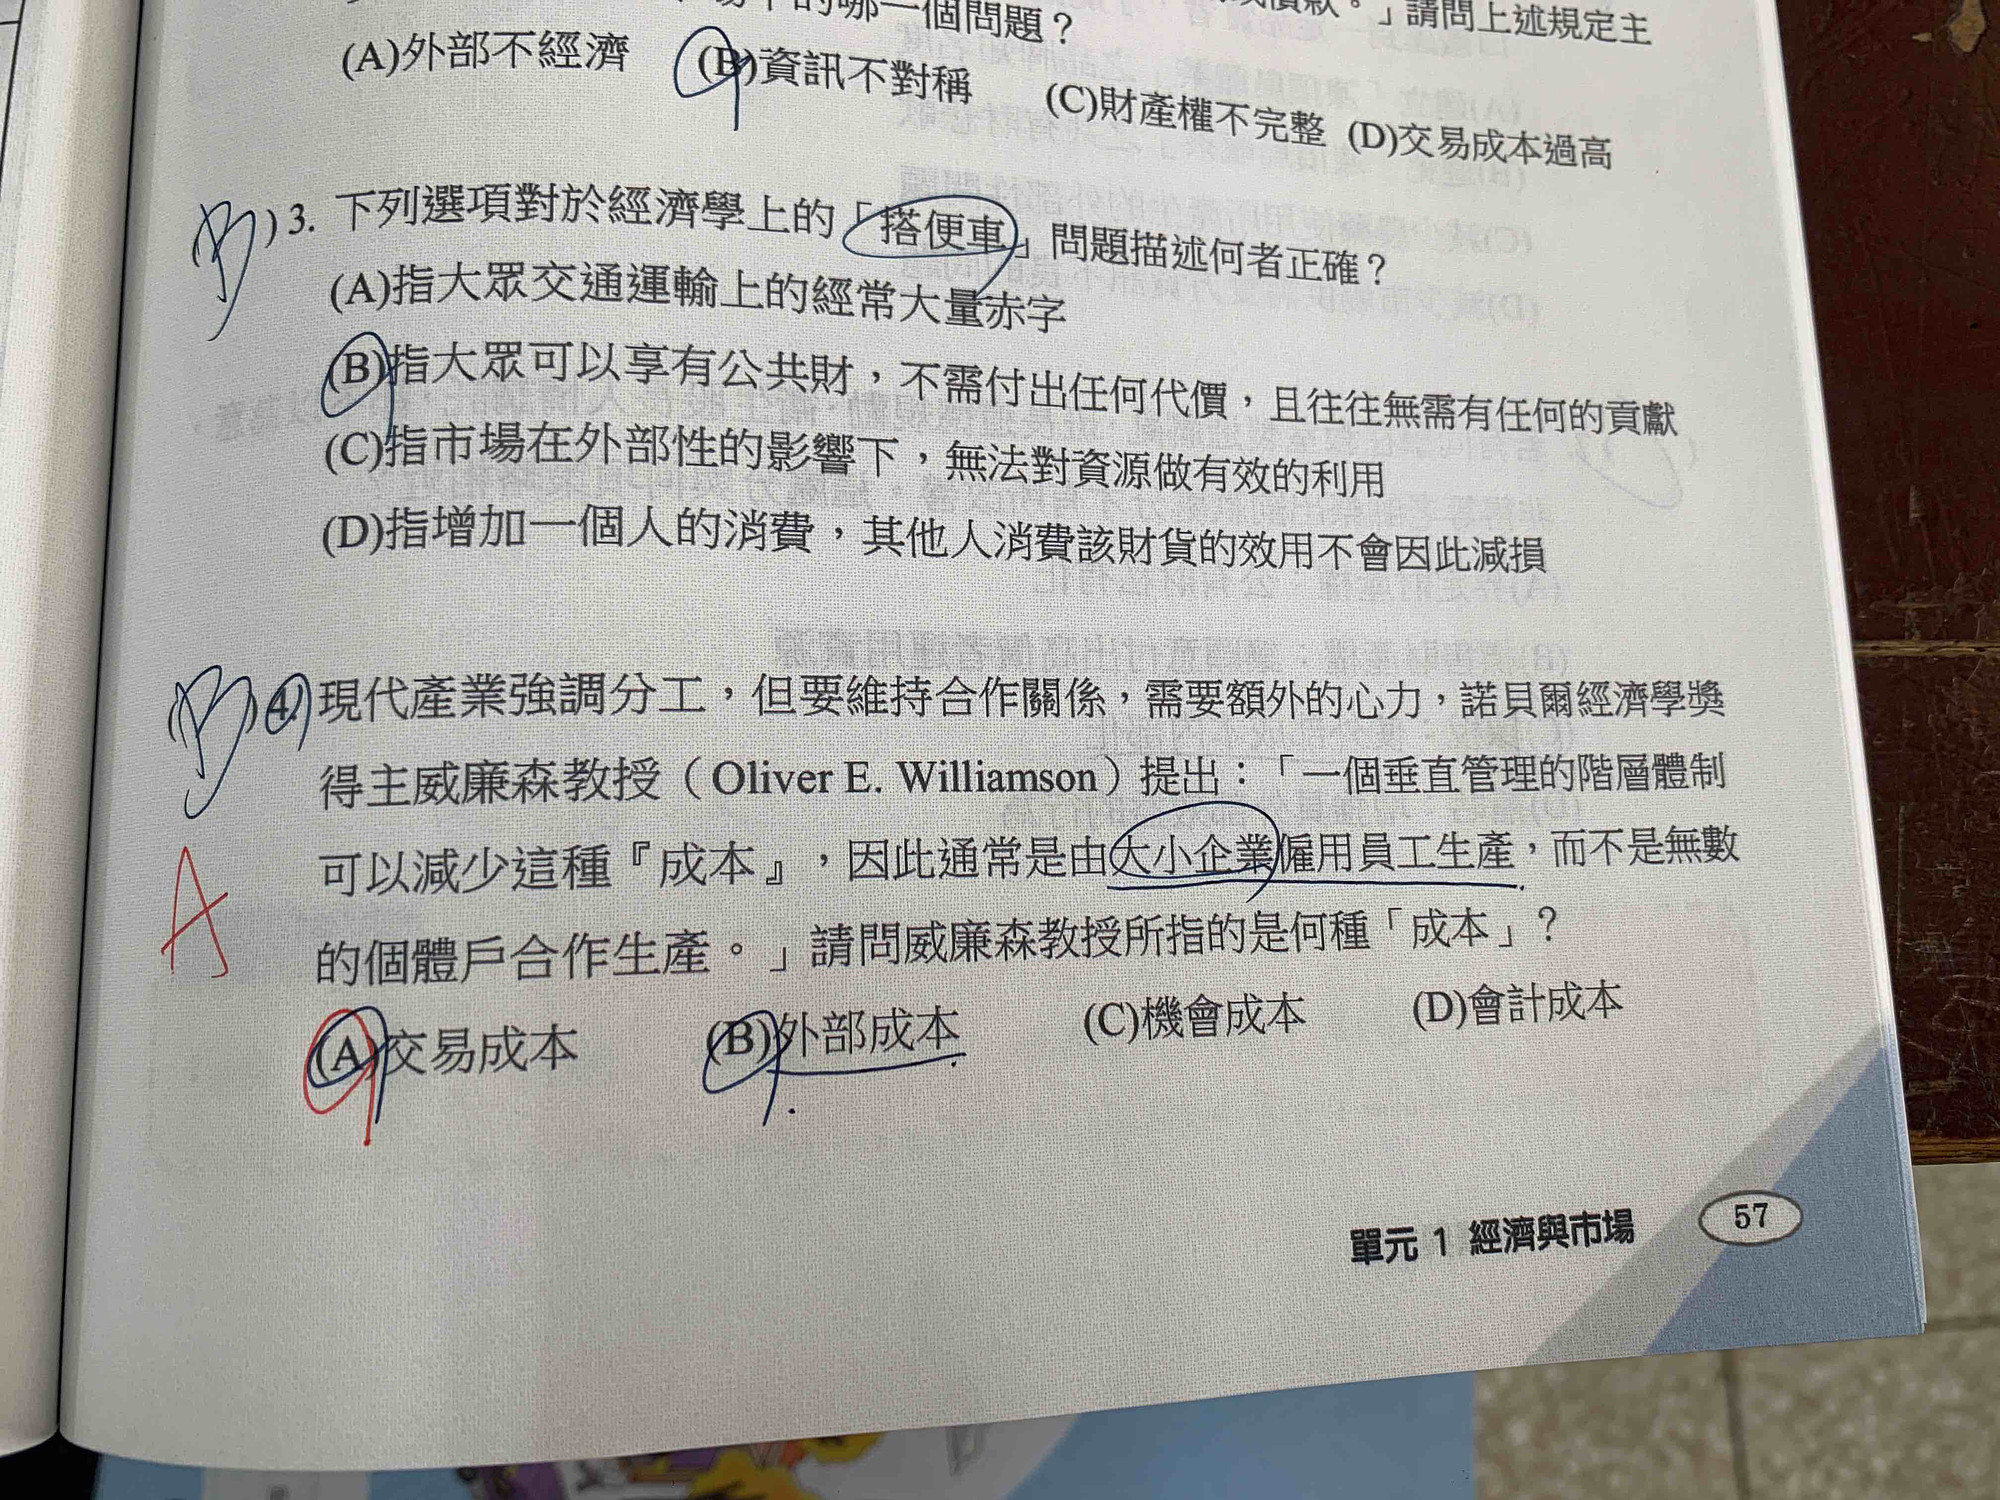 的哪一個問題？
」請問上述規定主
(A)外部不經濟 (B)資訊不對稱 (C)財產權不完整 (D)交易成本過高
B)3. 下列選項對於經濟學上的「搭便車」問題描述何者正確？
(A)指大眾交通運輸上的經常大量赤字
(B)指大眾可以享有公共財，不需付出任何代價，且往往無需有任何的貢獻
(C)指市場在外部性的影響下，無法對資源做有效的利用
(D)指增加一個人的消費，其他人消費該財貨的效用不會因此減損
(B)4. 現代產業強調分工，但要維持合作關係，需要額外的心力，諾貝爾經濟學獎
得主威廉森教授（Oliver E. Williamson）提出：「一個垂直管理的階層體制
可以減少這種『成本』，因此通常是由大小企業僱用員工生產，而不是無數
A
的個體戶合作生產。」請問威廉森教授所指的是何種「成本」？
(A)交易成本 (B)外部成本 (C)機會成本 (D)會計成本
單元 1 經濟與市場 57